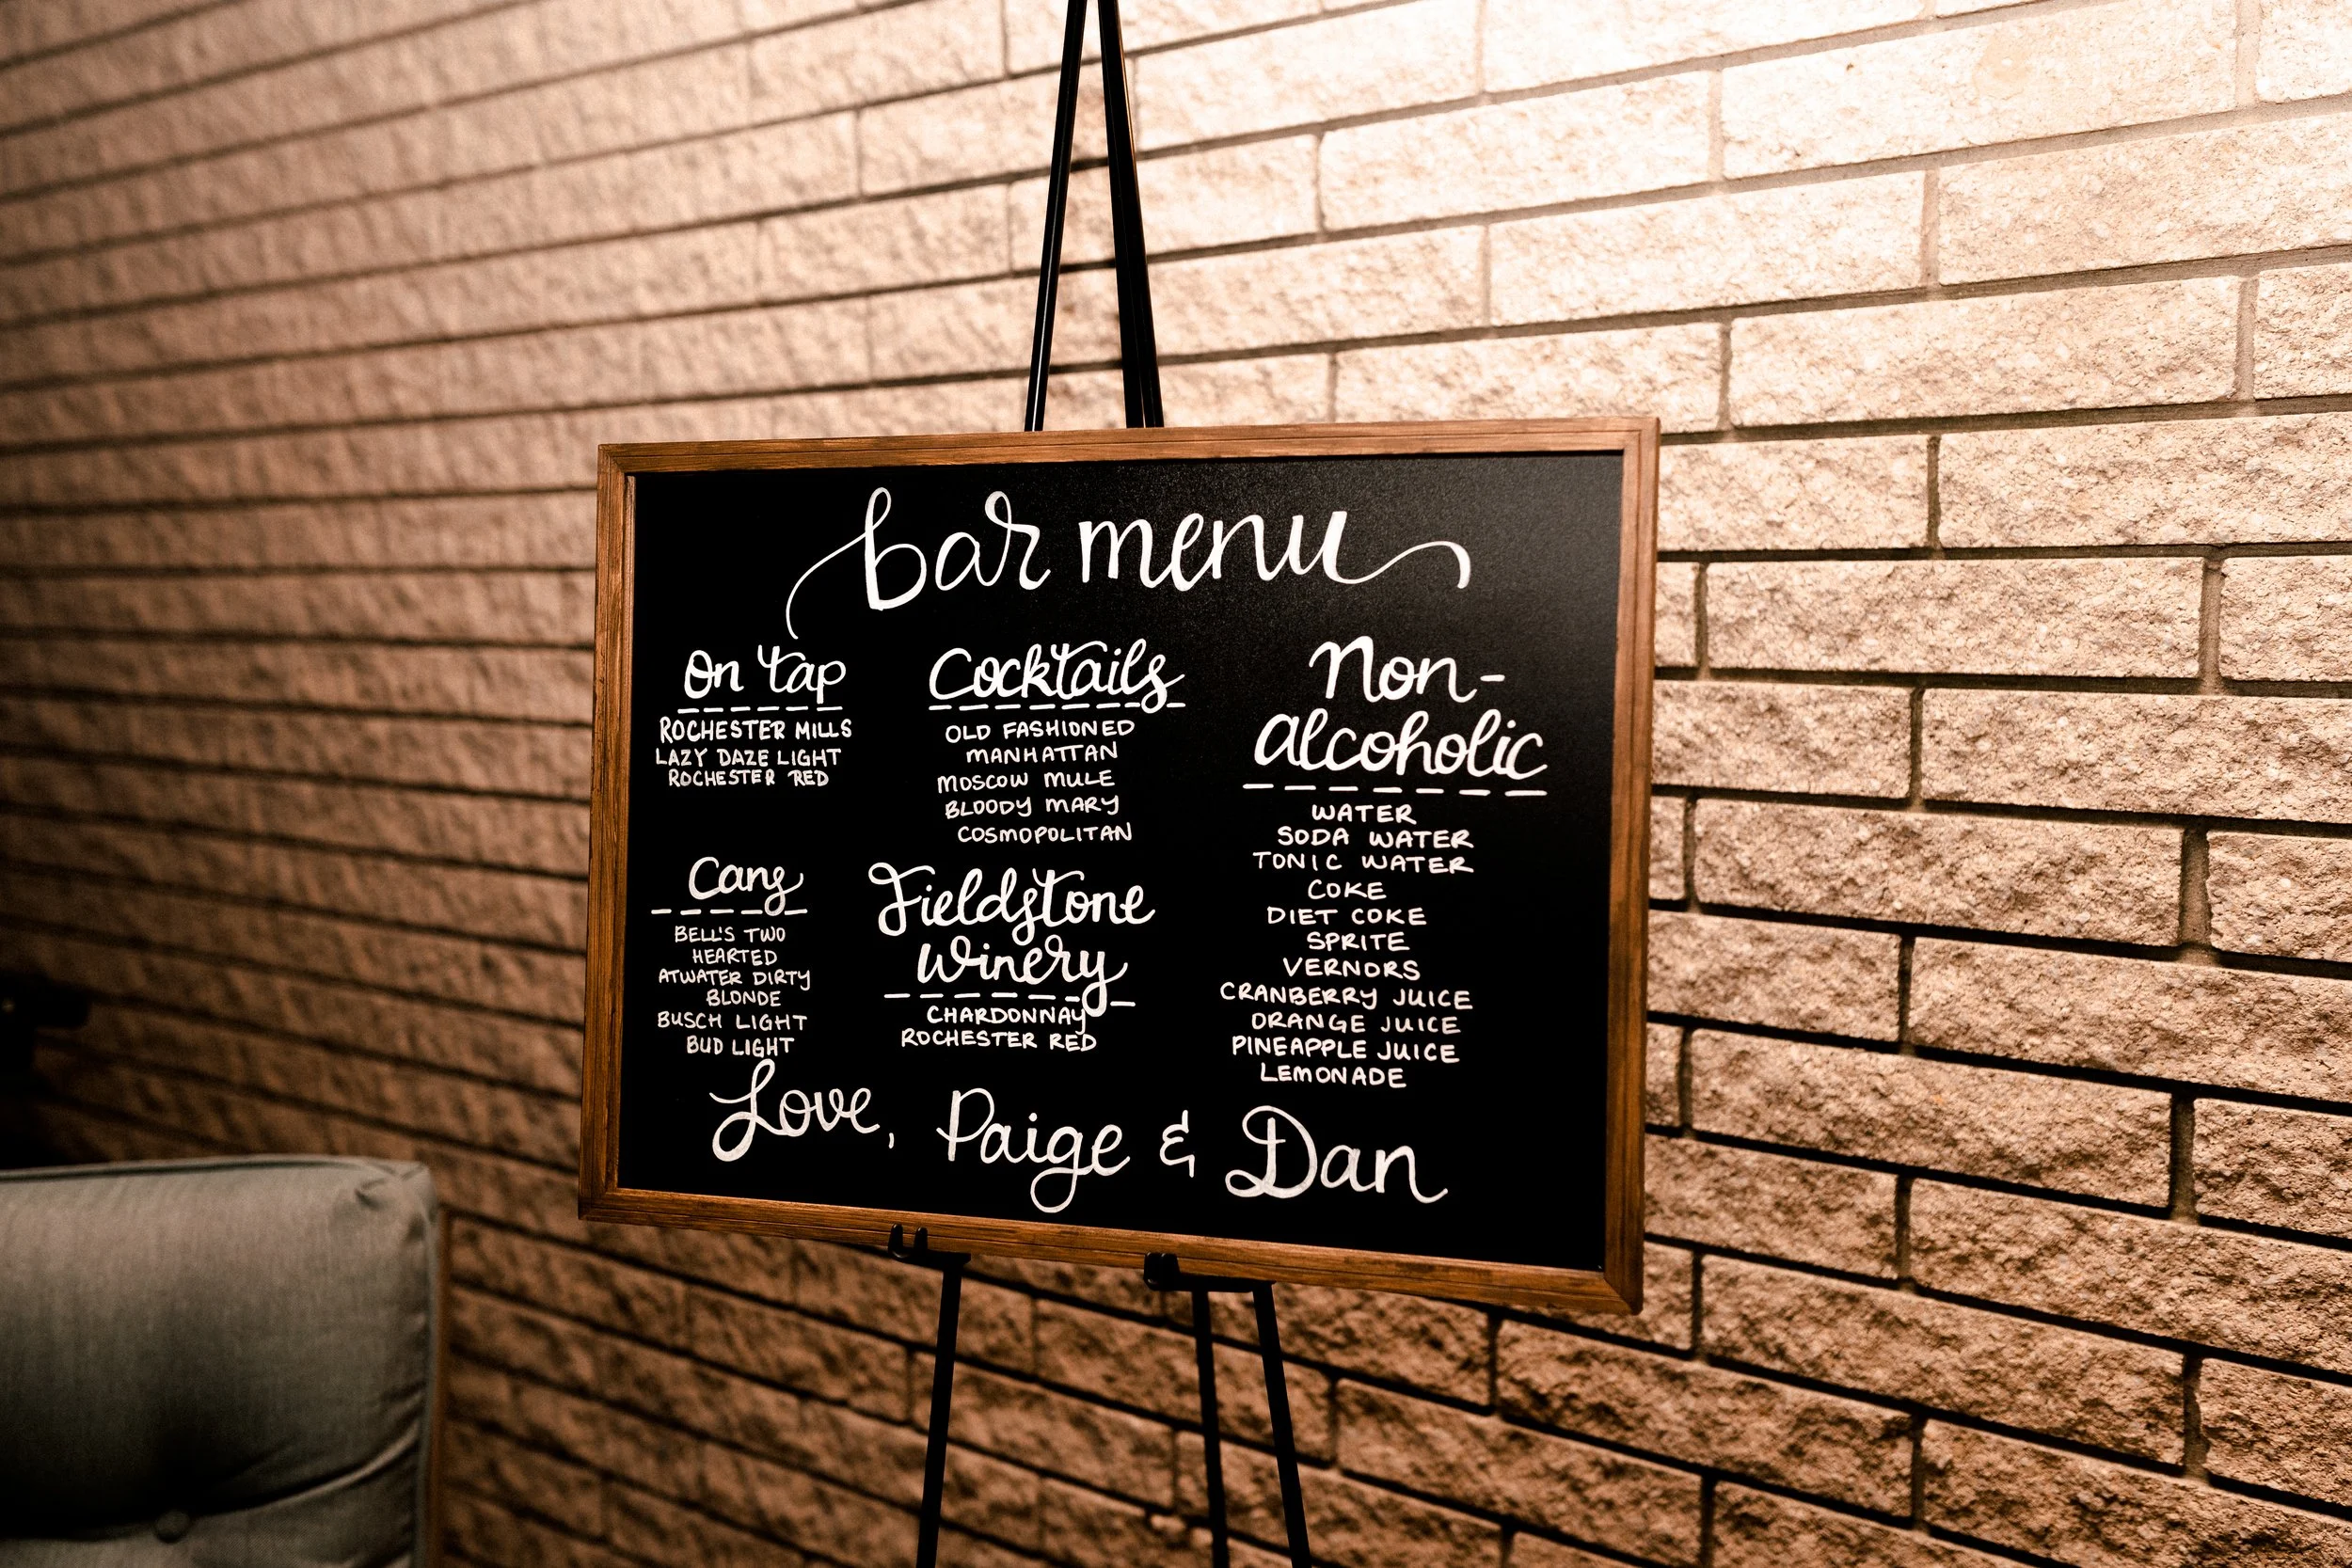 bar menu
On tap
ROCHESTER MILLS
LAZY DAZE LIGHT
ROCHESTER RED
Cans
BELL'S TWO
HEARTED
ATWATER DIRTY
BLONDE
BUSCH LIGHT
BUD LIGHT
Cocktails
OLD FASHIONED
MANHATTAN
MOSCOW MULE
BLOODY MARY
COSMOPOLITAN
Fieldstone
Winery
CHARDONNAY
ROCHESTER RED
Non-
alcoholic
WATER
SODA WATER
TONIC WATER
COKE
DIET COKE
SPRITE
VERNORS
CRANBERRY JUICE
ORANGE JUICE
PINEAPPLE JUICE
LEMONADE
Love, Paige & Dan